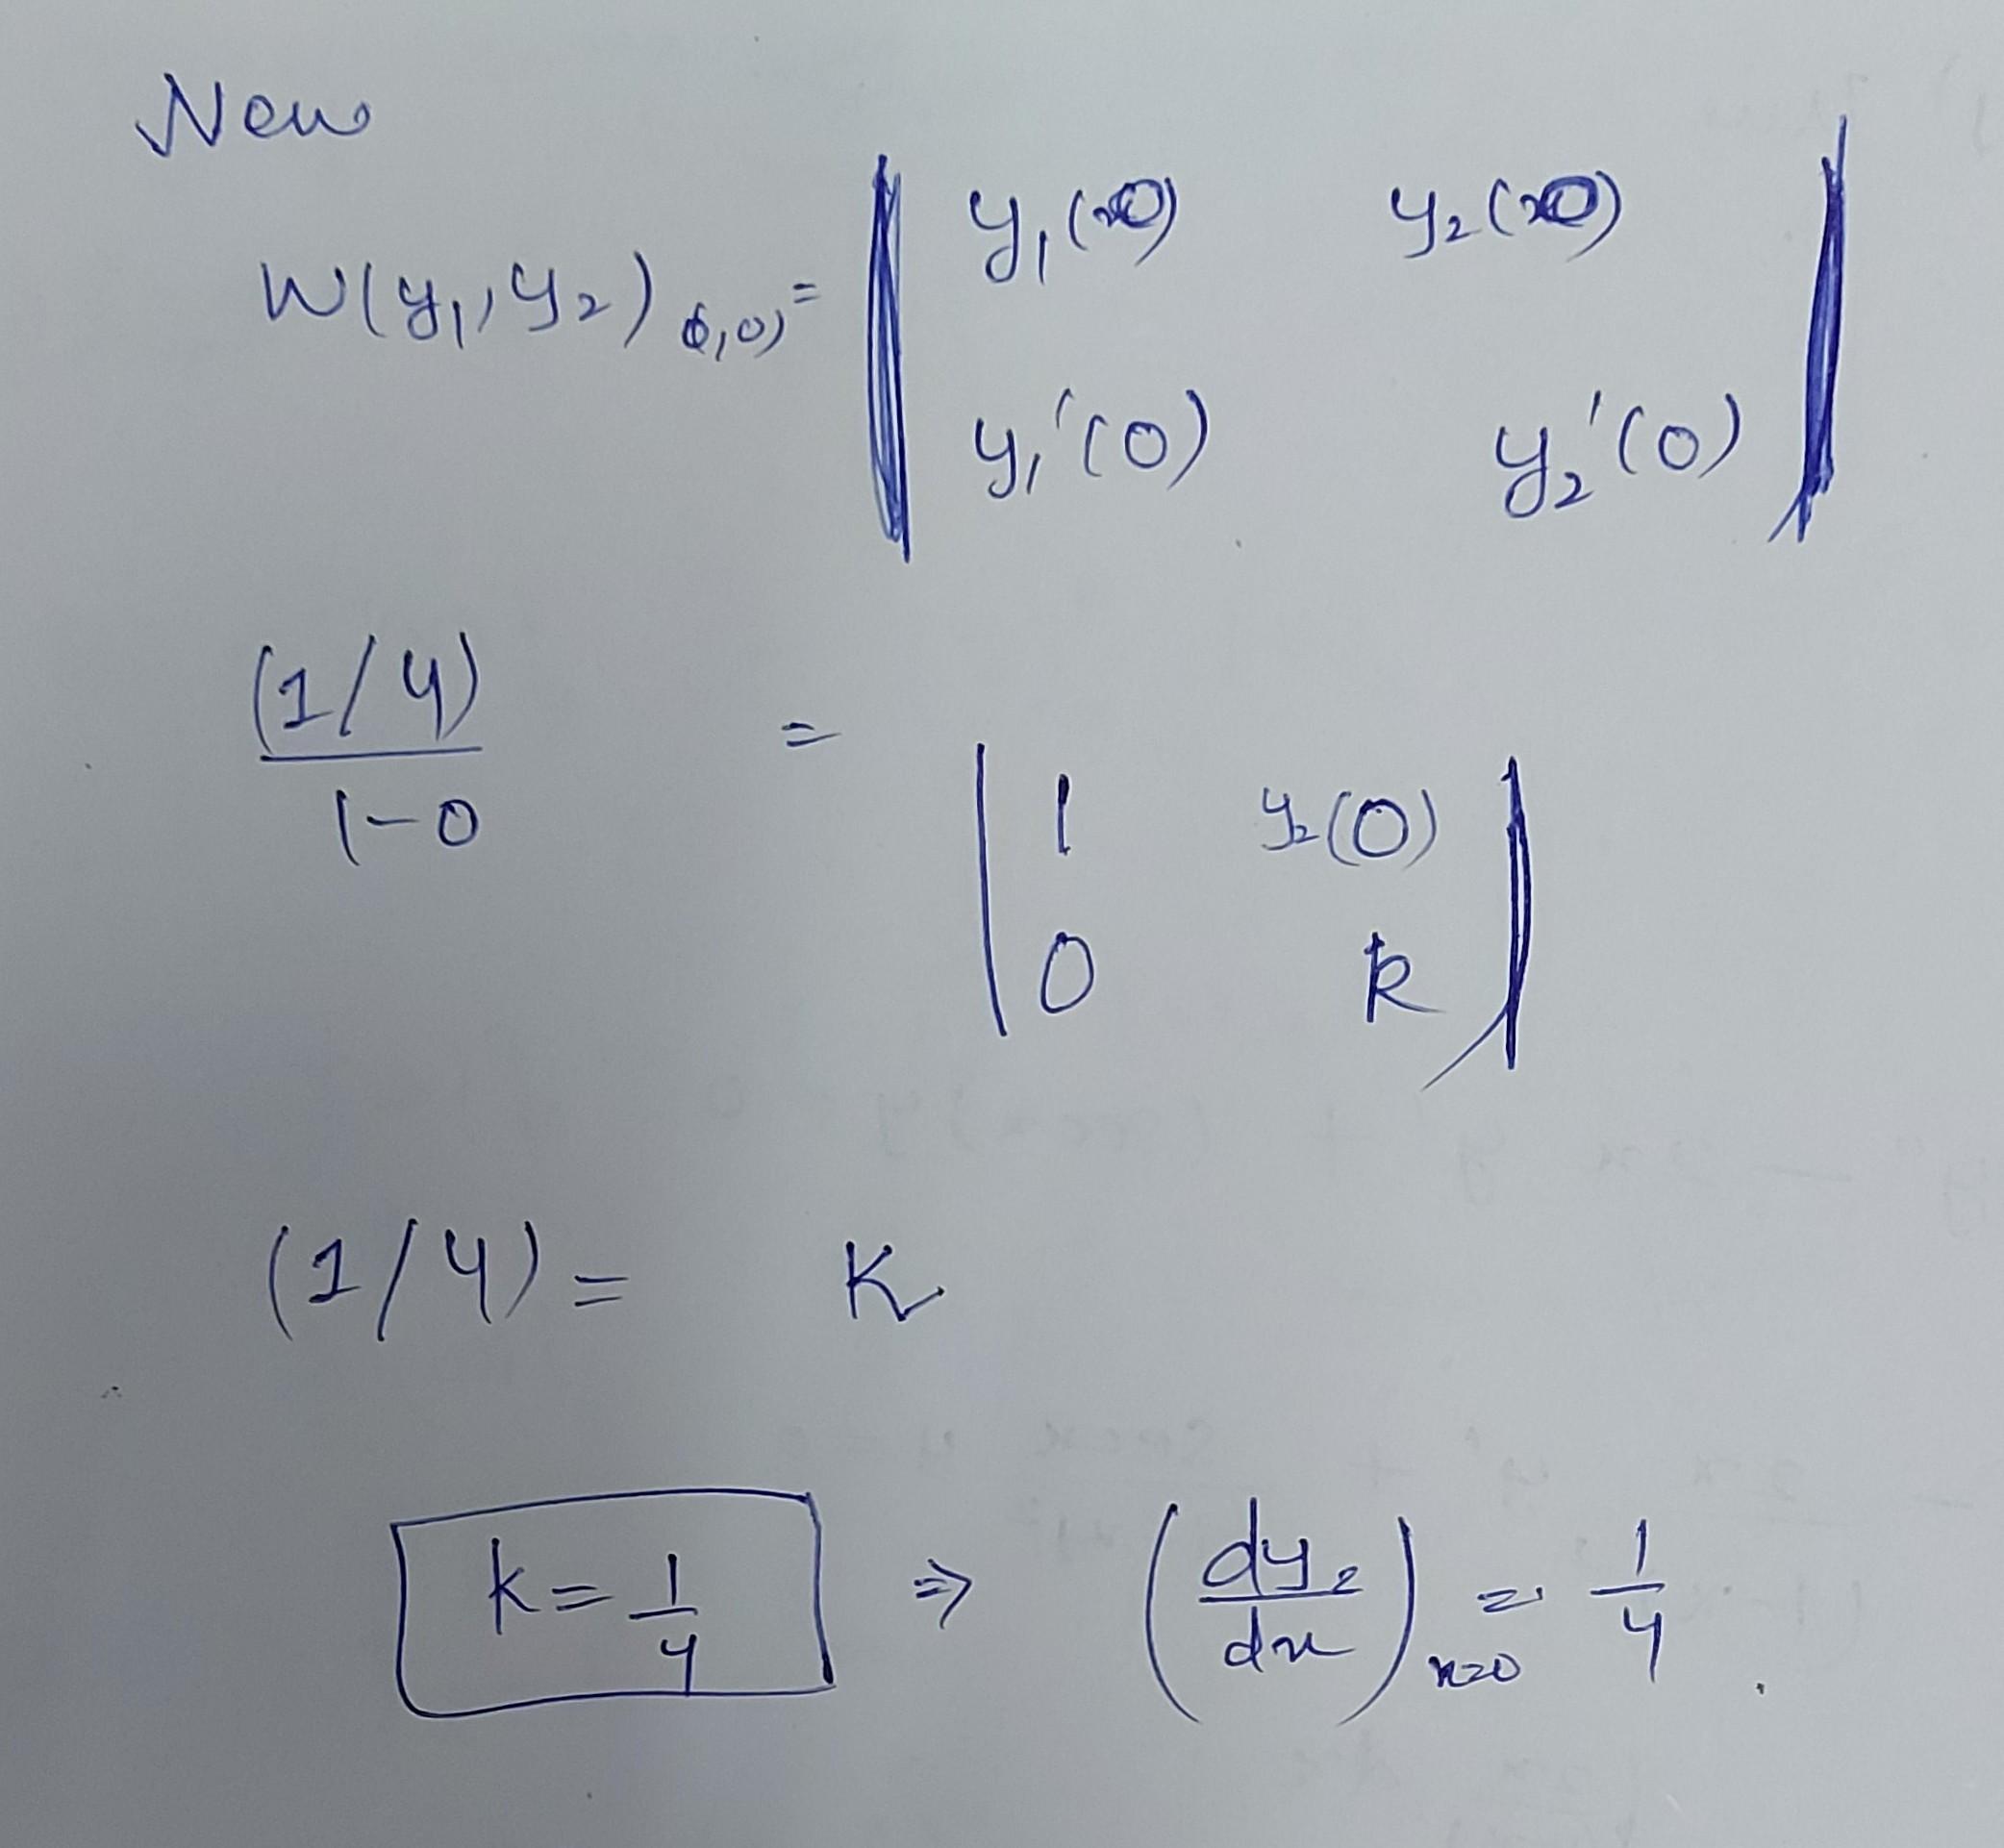 Now
W(y₁, y₂)₍₀,₀₎ = | y₁(0) y₂(0) |
| y₁'(0) y₂'(0) |
(1/4)/(1-0) = | 1 y₂(0) |
| 0 k |
(1/4) = K
k = 1/4 ⇒ (dy₂/dx)ₓ₌₀ = 1/4 .